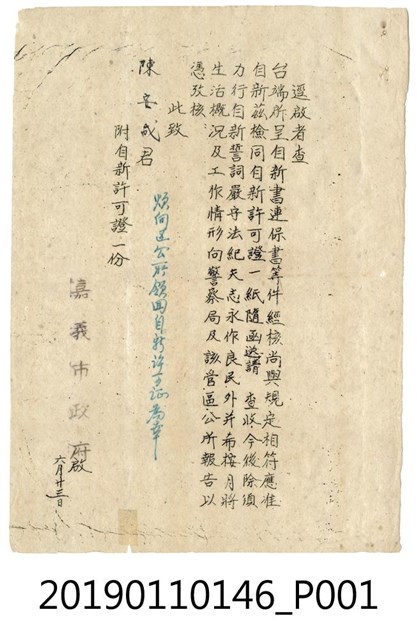 逕啟者查
台端所呈自新書連保書等件經核尚與規定相符應准
自新茲檢同自新許可證一紙隨函送請 查收今後除須
力行自新誓詞嚴守法紀矢志永作良民外并希按月將
生活概況及工作情形向警察局及該管區公所報告以
憑攷核
此致
陳 君
煩向區公所領回自新許可證為幸
附自新許可證一份
嘉義市政府啟
六月廿三日
20190110146_P001